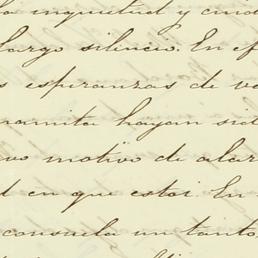 inquietud y
largo silencio. En
esperanzas de
hayan
motivo de
en que estoi. En
consuela un tanto